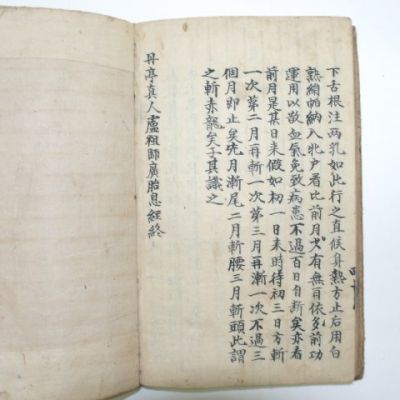 下舌根注两乳如此行之直候身熱方止右用白
熟絹帕納入牝戶看比前月有無百依多前功
運用以散血氣免致病患不過百日自斷矣亦看
前月是某日来假如初一日来時待初三日方斬
一次第二月再斬一次第三月再漸一次不過三
個月即止矣先月漸尾二月斬腰三月斬頭此謂
之斬赤龍矣子其識之
丹亭真人盧祖師廣胎息經終